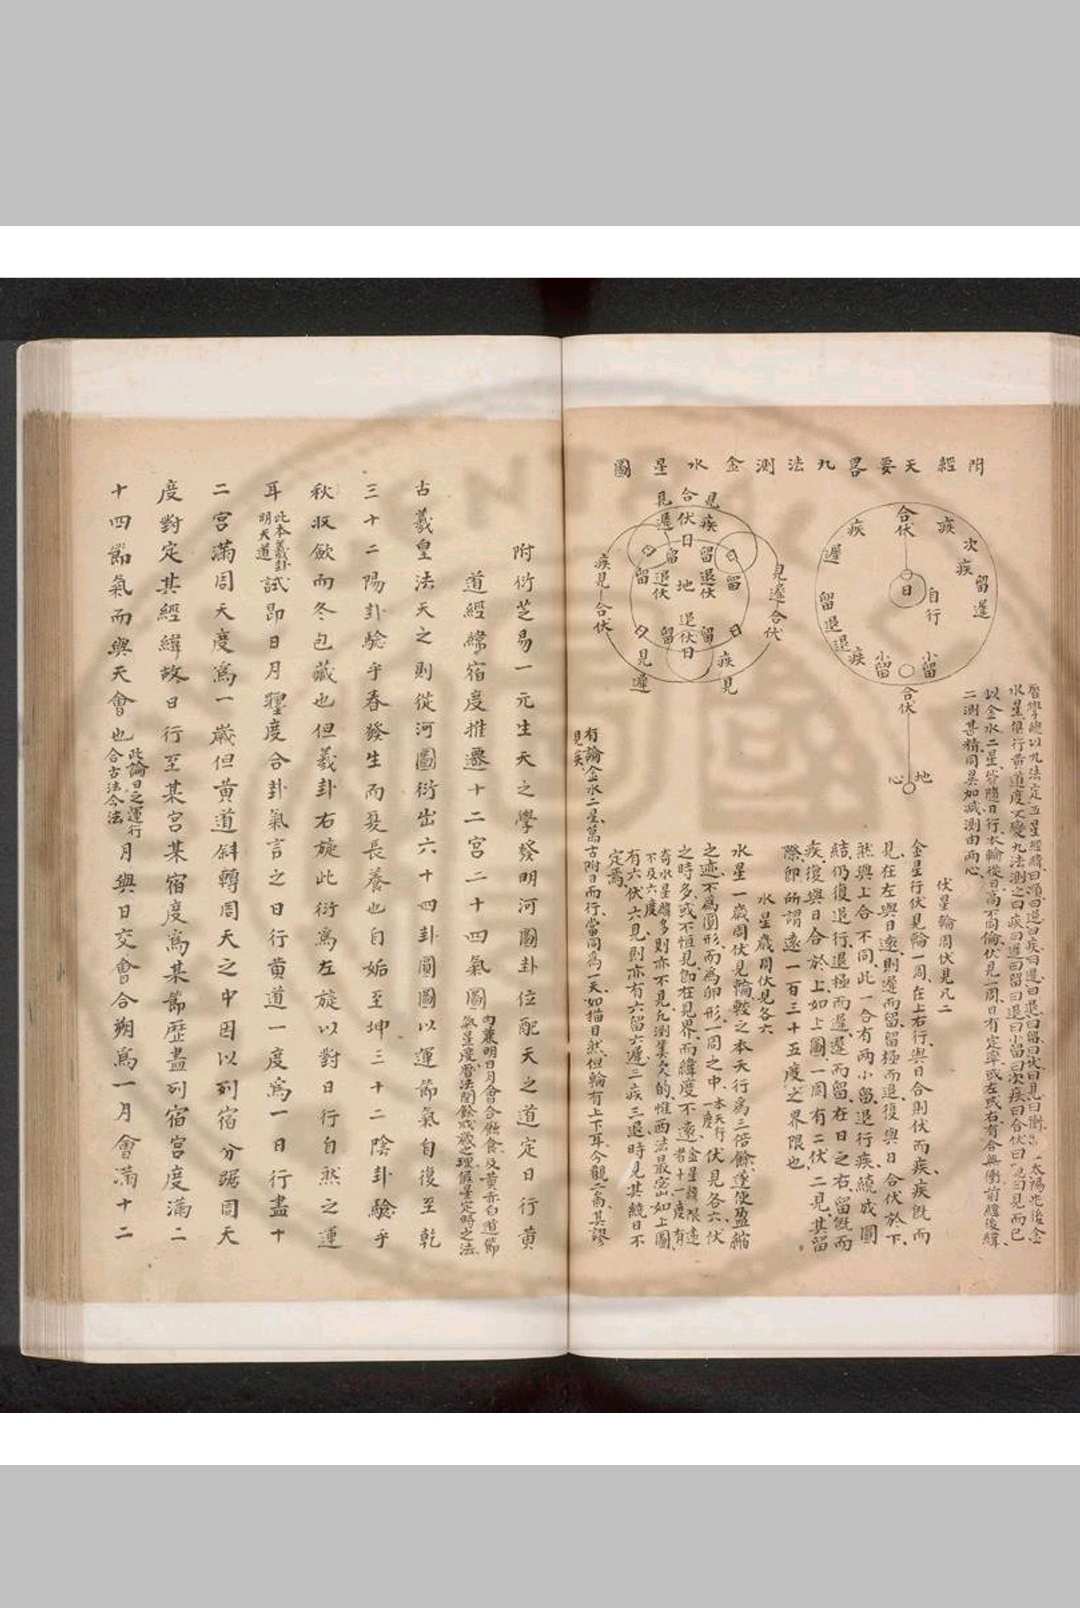 附經天要畧九法測金水星圖
合伏
疾
次疾
留
遲
日
自行
小留
小留
疾
遲
留
退
退
疾
合伏
地心
見
合
見
遲
伏
疾
日
留
留
留
留
退伏
地
退伏
退伏
日
留
留
疾見
合伏
見遲
合伏
見
遲
疾
見
曆學總以九法定五星經緯曰順曰逆曰疾曰遲曰退曰留曰伏曰見曰衝
以金水二星皆隨日行本輪從日高不同倫伏見一周日有定率或左或右有合無衝前經後緯
二測甚精同異如左測由兩心
伏星輪周伏見凡二
金星行伏見輪一周在上右行與日合則伏而疾疾既而
見在左與日遠則遲而留留極而退復與日合伏於下
然與上合不同此一合有兩小留退行疾繞成圓
結仍復退行退極而遲遲而留在日之右留既而
疾復與日合於上如上圖一周有二伏二見其留
際即所謂遠一百三十五度之界限也
水星歲周伏見各六
水星一歲周伏見輪較之本天行為三倍餘遂使盈縮
之迹不為圓形而為卵形一周之中本天行一度伏見各六伏
之時多或不恒見即在見界而緯度不遠金星緯限遠者十一度有
奇水星緯多不及六度則亦不見九測纂灸的惟西法最密如上圖
有六伏六見則亦有六留六遲三疾三退時見其繞日不
定焉
有論金水二星萬古附日而行當同為一天如描日然但輪有上下耳今觀二圖其謬
見矣
附衍芝易一元生天之學發明河圖卦位配天之道定日行黃
道經緯宿度推遷十二宮二十四氣圖內兼明日月會合飲食及黃赤白道節
氣星度曆法閏餘成歲之理儀晷定時之法
古羲皇法天之則從河圖衍出六十四卦圓圖以運節氣自復至乾
三十二陽卦驗乎春發生而夏長養也自姤至坤三十二陰卦驗乎
秋收斂而冬包藏也但羲卦右旋此衍為左旋以對日行自然之運
耳此本羲卦明天道試昂日月躔度合卦氣言之日行黃道一度為一日行盡十
二宮滿周天度為一歲但黃道斜轉周天之中因以列宿分踞周天
度對定其經緯故日行至某宮某宿度為某節歷盡列宿宮度滿二
十四節氣而與天會也此論日之運行合古法今法月與日交會合朔為一月會滿十二